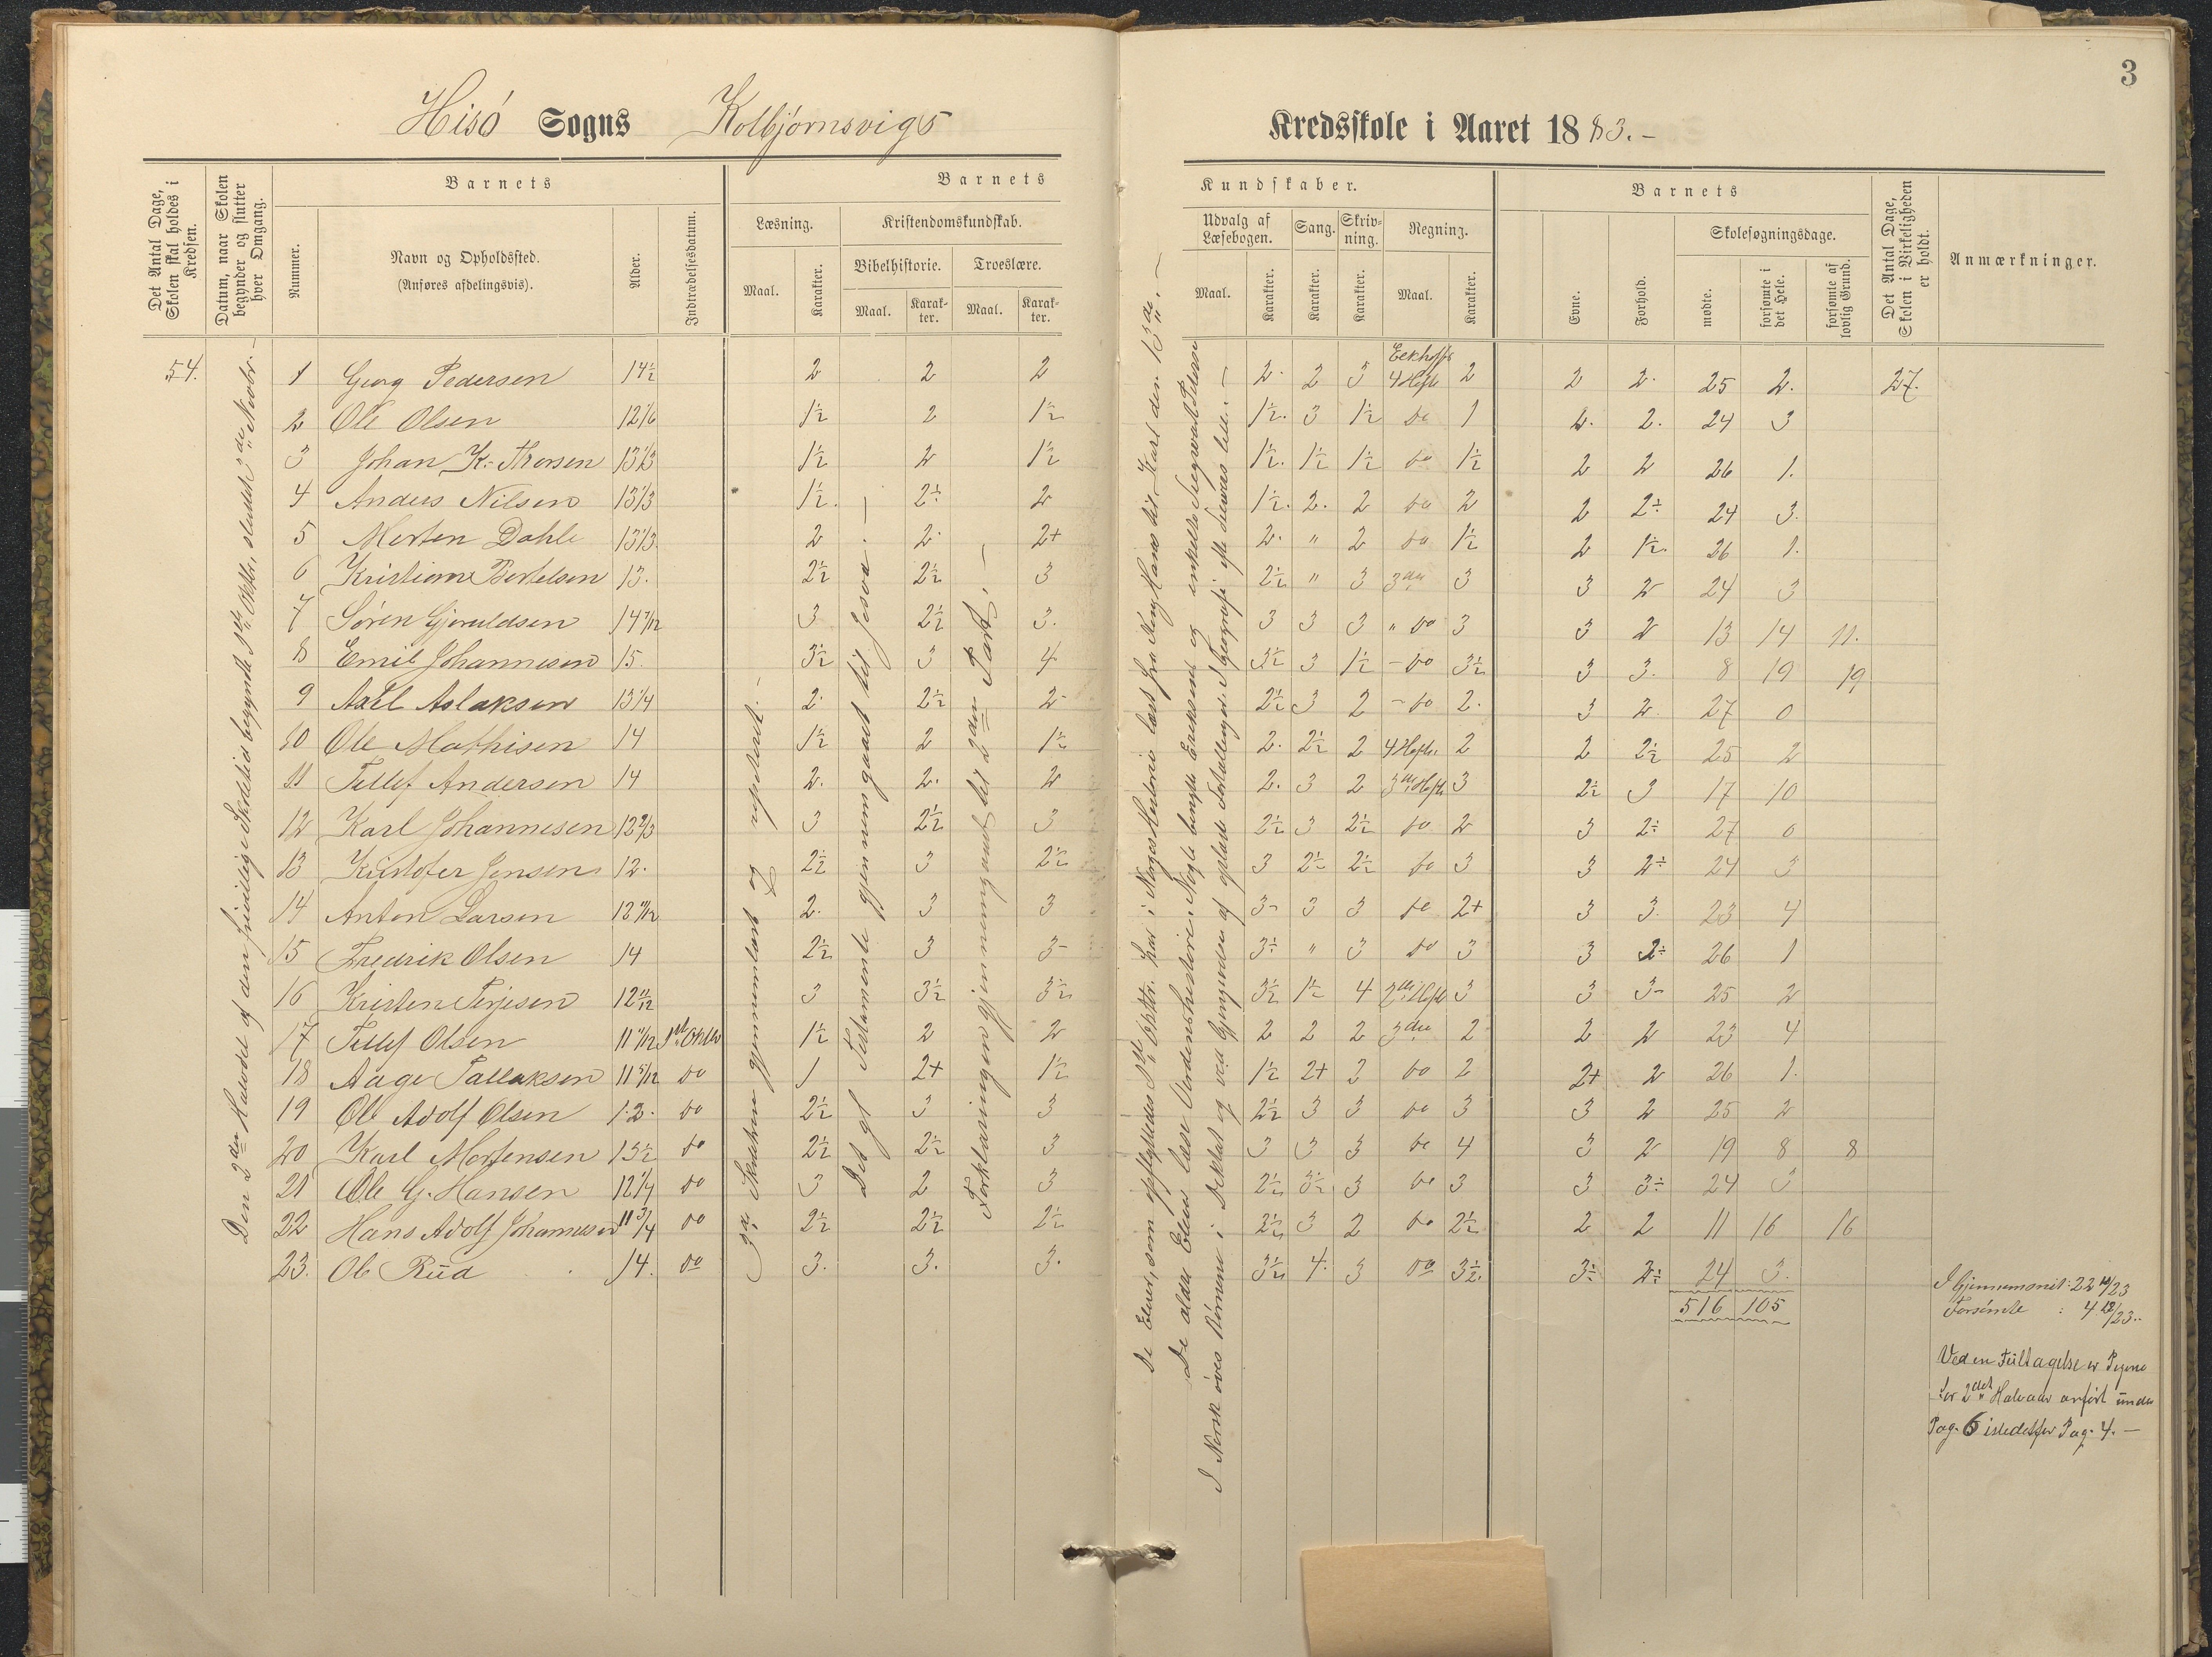 3
Hisø Sogns Kolbjørnsvigs Kredsskole i Aaret 1883.-
Det Antal Dage, Skolen skal holdes i Kredsen.
Datum, naar Skolen begynder og slutter hver Omgang.
Barnets
Nummer.
Navn og Opholdssted.
(Anføres afdelingsvis).
Alder.
Indtrædelsesdatum.
Barnets Kundskaber.
Læsning.
Maal.
Karakter.
Kristendomskundskab.
Bibelhistorie.
Maal.
Karakter.
Troeslære.
Maal.
Karakter.
Udvalg af Læsebogen.
Maal.
Karakter.
Sang.
Karakter.
Skrivning.
Karakter.
Regning.
Maal.
Karakter.
Barnets
Evne.
Forhold.
Skolesøgningsdage.
mødte.
forsømte i det Hele.
forsømte af lovlig Grund.
Det Antal Dage, Skolen i Virkeligheden er holdt.
Anmærkninger.
54. 1 Georg Pedersen 14½ 2 2 2 2. 2 3 Eckhoffs 4 Hefte 2 2 2. 25 2. 27.
2 Ole Olsen 12 1/6 1½ 2 1½ 1½. 3 1½ do 1 2. 2. 24 3
3 Johan K. Thorsen 13 1/3 1½ 2 1½ 1½. 1½ 1½ do 1½ 2 2 26 1.
4 Anders Nilsen 13 1/3 1½. 2÷ 2 1½. 2. 2 do 2 2 2÷ 24 3.
5 Morten Dahle 13 1/3. 2 2. 2+ 2. " 2 do 1½ 2 1½. 26 1.
6 Kristian Bertelsen 13. 2½ 2½ 3 2½ " 3 3die 3 3 2 24 3
7 Søren Gjeruldsen 14 7/12 3 2½ 3. 3 3 3 " do 3 3 2 13 14 11.
8 Emil Johannesen 15. 3½ 3 4 3½ 3 1½ - do 3½ 3 3. 8 19 19
9 Axel Aslaksen 13 1/4 2. 2½ 2- 2½ 3 2 - do 2. 3 2. 27 0
10 Ole Mathisen 14 1½ 2 1½ 2. 2½ 2 4 Hefte. 2 2 2½ 25 2
11 Tellef Andersen 14 2. 2. 2 2. 3 2 3die Hefte 3 2½ 3 17 10
12 Karl Johannesen 12 2/3 3 2½ 3 2½ 3 2½ do 2 3 2÷ 27 0
13 Kristofer Jensen 12. 2½ 3 2½ 3 2½ 2½ do 3 3 2÷ 24 3
14 Anton Larsen 12 11/12 2. 3 3 3- 3 3 do 2+ 3 3. 23 4
15 Fredrik Olsen 14 2½ 3 3- 3÷ " 3 do 3 3 2÷ 26 1
16 Kristen Terjesen 12 11/12 3 3½ 3½ 3½ 1½ 4 2det Hefte 3 3 3- 25 2
17 Tellef Olsen 11 11/12 1ste Oktbr 1½ 2 2 2 2 2 3die 2 2 2 23 4
18 Aage Tallaksen 11 5/12 do 1 2+ 1½ 1½ 2+ 2 do 2 2+ 2 26 1.
19 Ole Adolf Olsen 12. do 2½ 3 3 2½ 3 3 do 3 3 2 25 2
20 Karl Mortensen 13½ do 2½ 2½ 3 3 3 3 do 4 3 2 19 8 8
21 Ole G. Hansen 12 1/4 do 3 2 3 2½ 3½ 3 do 3 3 3÷ 24 3
22 Hans Adolf Johannesen 11 3/4 do 2½ 2½ 2½ 2½ 3 2 do 2½ 2 2 11 16 16
23. Ole Rüd 14. do 3. 3. 3. 3½ 4. 3 do 3½. 3÷ 2÷ 24 3.
516 105
Den 2den Halvdel af den frivillige Skoletid begyndte 1ste Oktbr., sluttet 3die Novbr.-
3die Skoletrin gjennemlæst og repeteret.-
Det gl Testamente gjennemgaaet til Josva.-
Forklaringen gjennemgaaet til 2den Part.-
De Elever, som opflyttedes 1ste Oktbr. har i Norges Historie læst fra Kong Hans til Karl den 13de.-
De ældre Elever læse Verdenshistorie. Nogle benytte Eriksens og enkelte Siegwart Petersen
I Norsk øves Børnene i Diktat og ved Gjengivelse af oplæste Fortællinger. I Geografi
I Gjennemsnit: 22 10/23
Forsømte : 4 13/23.
Ved en Feiltagelse er Pigerne
for 2det Halvaar anført under
Pag. 6 istedetfor Pag. 4.-